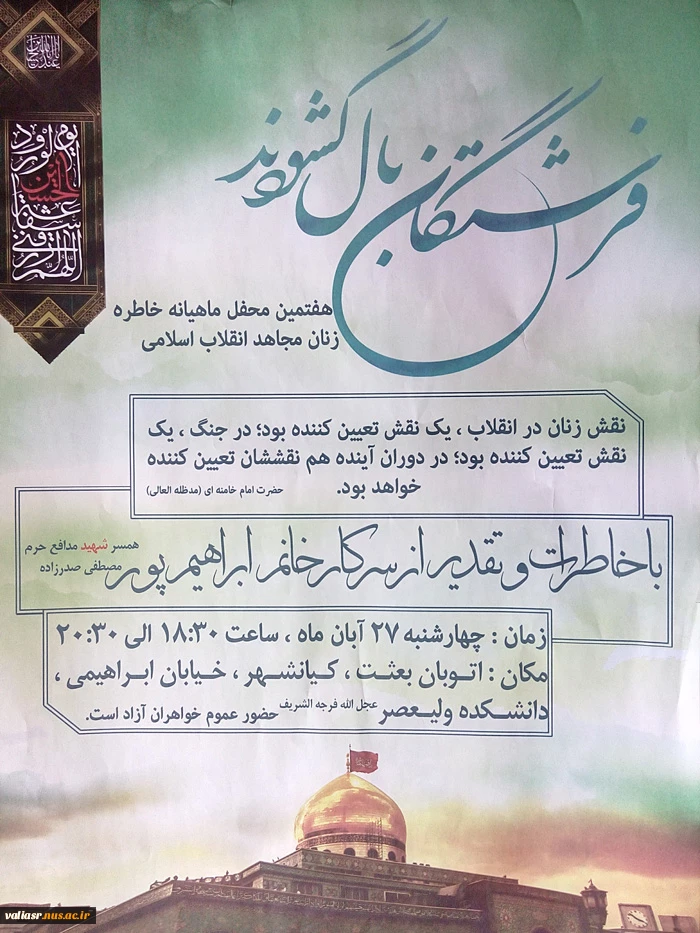 فرشتگان بال گشودند
اللهم ارزقنی
شفاعة
الحسین
یوم الورود
هفتمین محفل ماهیانه خاطره
زنان مجاهد انقلاب اسلامی
نقش زنان در انقلاب ، یک نقش تعیین کننده بود؛ در جنگ ، یک
نقش تعیین کننده بود؛ در دوران آینده هم نقششان تعیین کننده
خواهد بود.
حضرت امام خامنه ای (مدظله العالی)
با خاطرات و تقدیر از سرکار خانم ابراهیم پور
همسر شهید مدافع حرم
مصطفی صدرزاده
زمان : چهارشنبه ۲۷ آبان ماه ، ساعت ۱۸:۳۰ الی ۲۰:۳۰
مکان : اتوبان بعثت ، کیانشهر ، خیابان ابراهیمی ،
دانشکده ولیعصر عجل الله فرجه الشریف حضور عموم خواهران آزاد است.
valiasr.nus.ac.ir